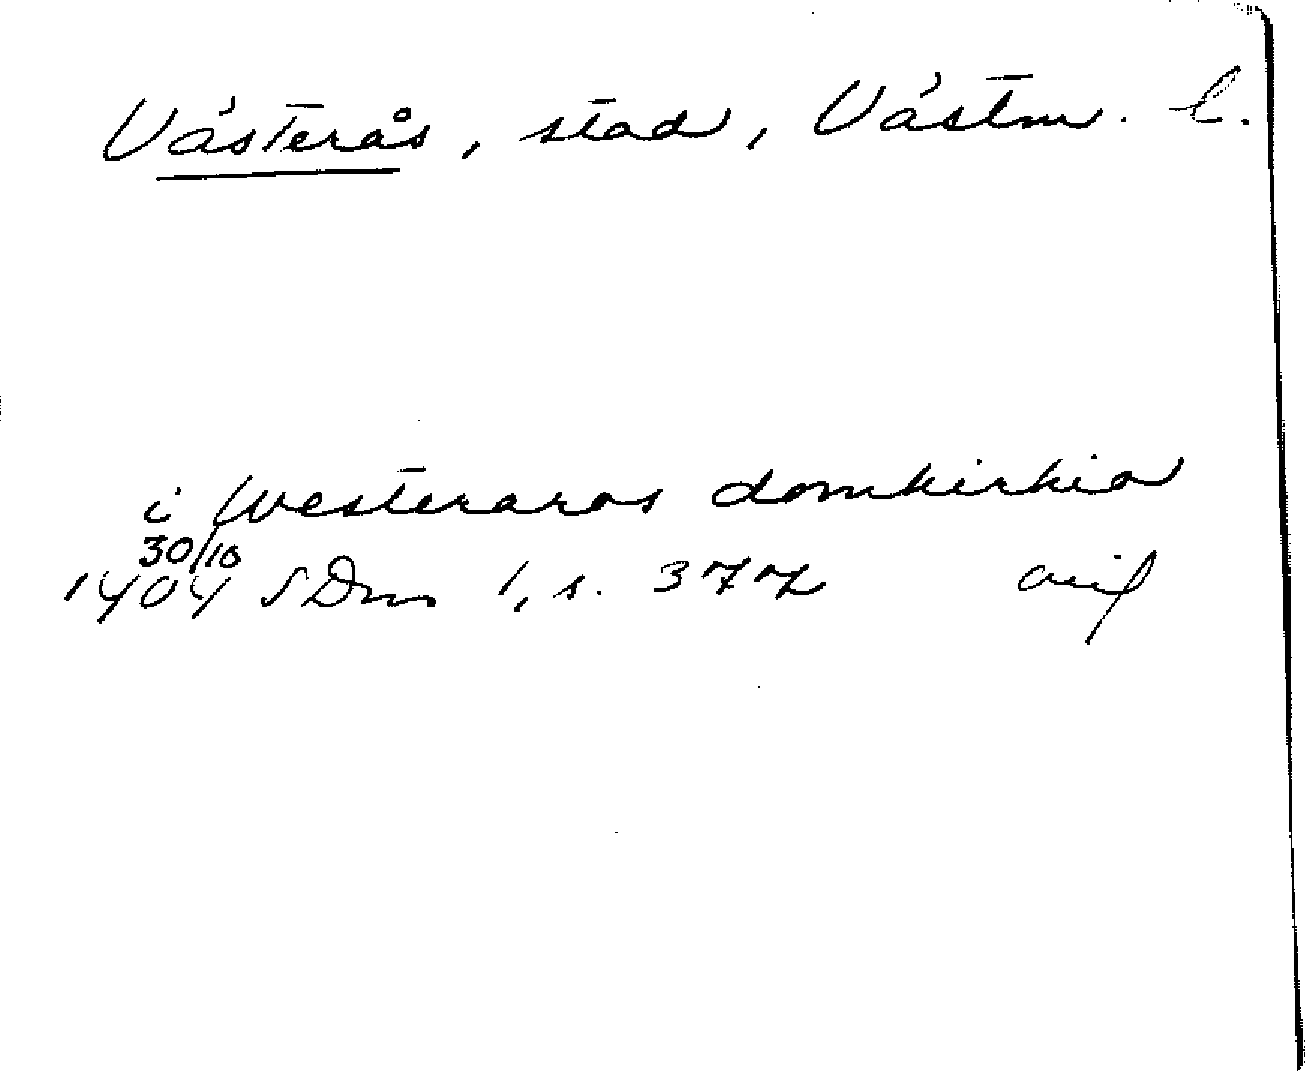 Västerås, stad, Västm. l.
i Westeraros domkirkio
30/10
1404 SDns 1, s. 377 avif